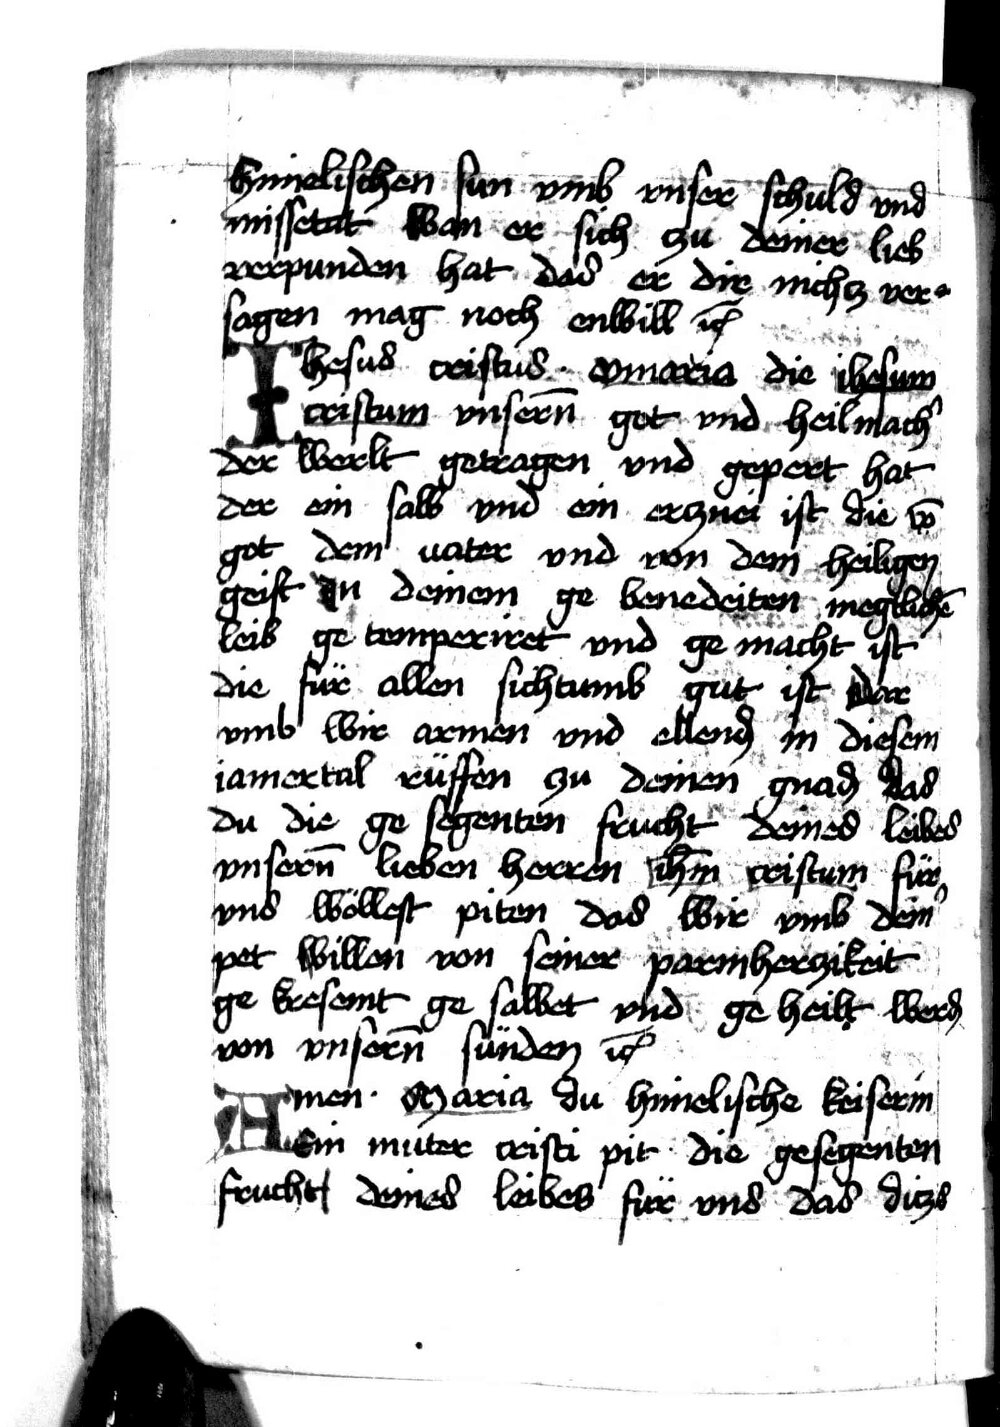 himelischen sun vmb vnser schuld vnd
missetat Wan er sich zu deiner lieb
verpunden hat das er dir nichcz ver-
sagen mag noch enwill ꝛc
Ihesus cristus · O maria die ihesum
cristum vnsern̄ got vnd heilmach'
der werlt getragen vnd gepert hat
der ein salb vnd ein ercznei ist die vō
got dem vater vnd von dem heiligen
geist In deinem ge benedeiten megtlichē
leib ge temperiret vnd ge macht ist
die für allen sichtumb gut ist Dar
vmb wir armen vnd ellend in diesem
iamertal rüffen zu deinen gnad das
du die ge segenten frucht deines leibes
vnsern̄ lieben herren ih̄m cristum für
vns wöllest piten das wir vmb dein'
pet willen von seiner parmherczikeit
ge kresemt ge salbet vnd ge heilt werd
von vnsern̄ sünden ꝛc
Amen · Maria du himelische keiserin
Ein muter cristi pit die gesegenten
frucht deines leibes für vns das diczs